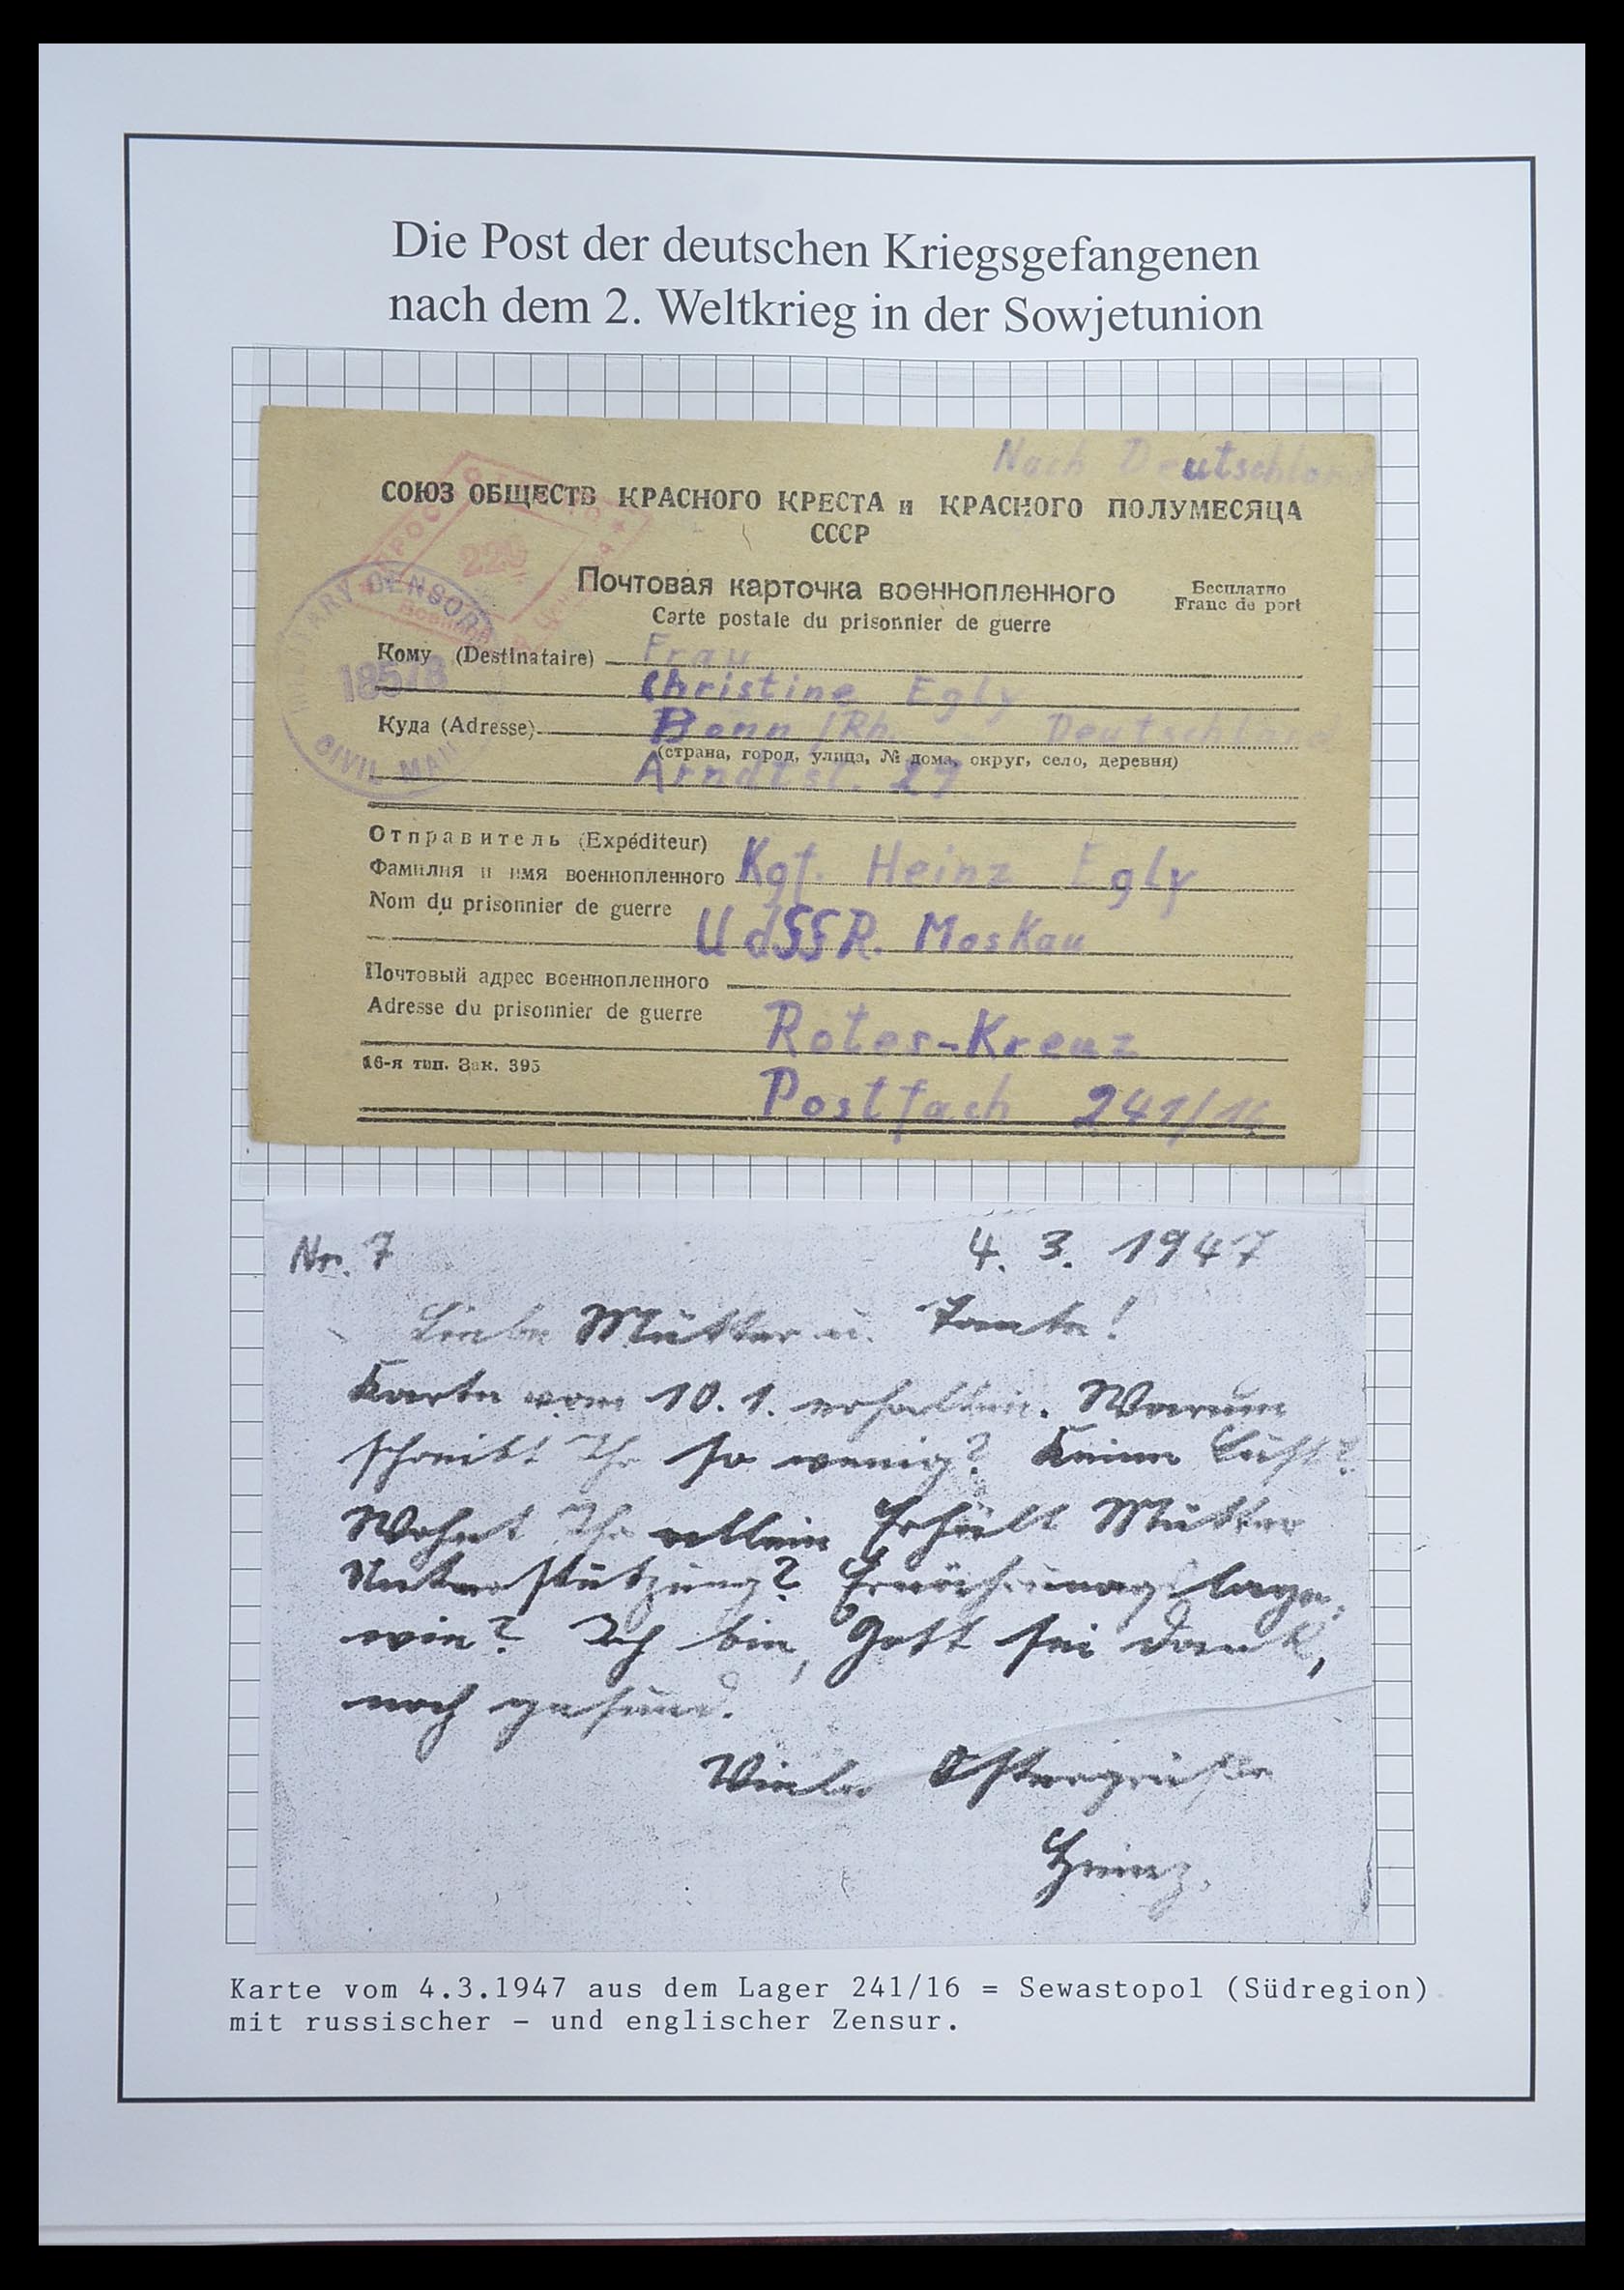 Die Post der deutschen Kriegsgefangenen
nach dem 2. Weltkrieg in der Sowjetunion
Nach Deutschland
СОЮЗ ОБЩЕСТВ КРАСНОГО КРЕСТА и КРАСНОГО ПОЛУМЕСЯЦА
СССР
Почтовая карточка военнопленного
Бесплатно
Carte postale du prisonnier de guerre
Franc de port
MILITARY CENSORSHIP
18578
CIVIL MAILS
Кому (Destinataire) Frau
Christine Egly
Куда (Adresse) Bonn /Rh. Deutschland
(страна, город, улица, № дома, округ, село, деревня)
Arndtst. 27
Отправитель (Expéditeur)
Фамилия и имя военнопленного Kgf. Heinz Egly
Nom du prisonnier de guerre
UdSSR. Moskau
Почтовый адрес военнопленного
Adresse du prisonnier de guerre
Rotes-Kreuz
16-я тип. Зак. 395
Postfach 241/16
Nr. 7 4. 3. 1947
Liebe Mutter u. Tante!
Karte vom 10. 1. erhalten. Warum
schreibt Ihr so wenig? Keine Lust?
Wohnt Ihr allein Erhält Mutter
Unterstützung? Ernährungslage,
wie? Ich bin, Gott sei dank,
noch gesund.
Viele Ostergrüße
Heinz.
Karte vom 4.3.1947 aus dem Lager 241/16 = Sewastopol (Südregion)
mit russischer – und englischer Zensur.